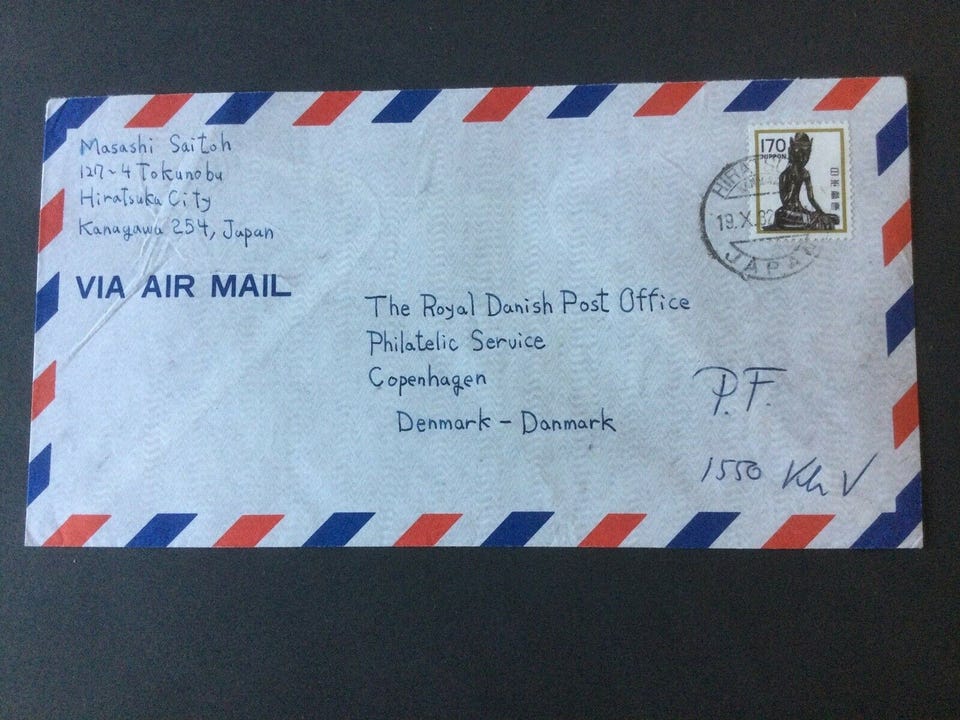 Masashi Saitoh
127-4 Tokunobu
Hiratsuka City
Kanagawa 254, Japan
VIA AIR MAIL
170
NIPPON
日本郵便
19.X.82
JAPAN
The Royal Danish Post Office
Philatelic Service
Copenhagen
Denmark - Danmark
P.F.
1550 Kh V